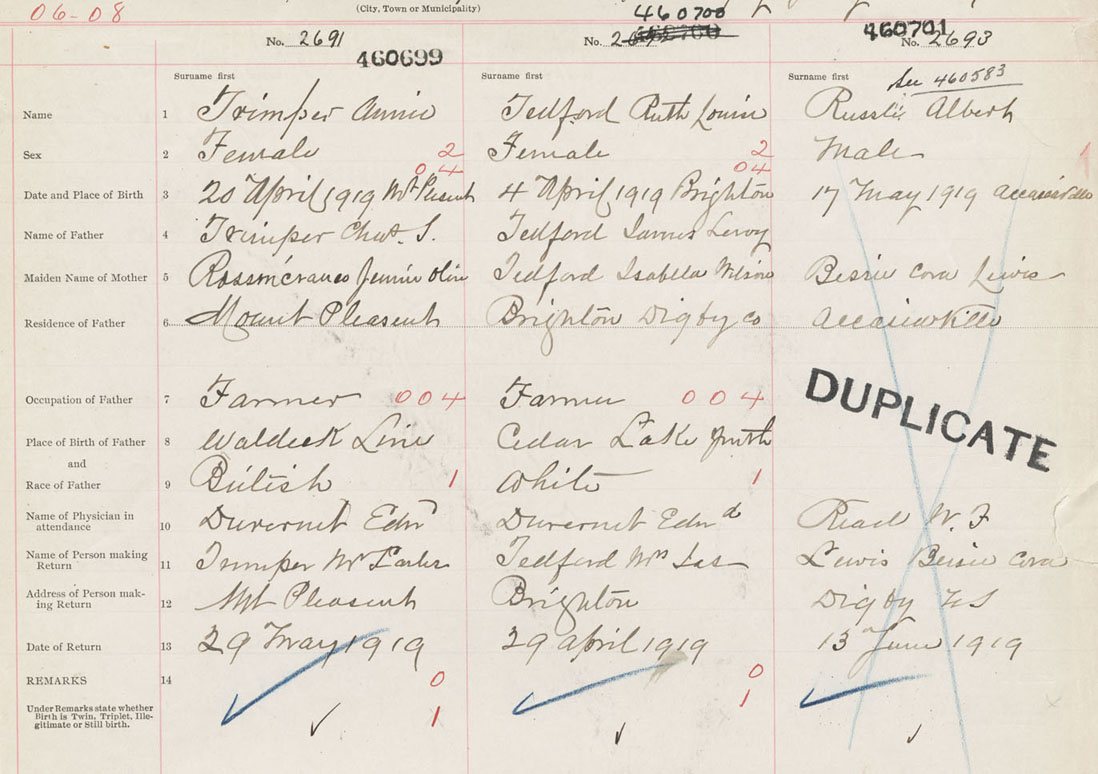 06-08
(City, Town or Municipality)
460700
460701
No. 2691 No. No. 2693
460699
See 460583
Surname first Surname first Surname first
Name 1 Trimper Annie Tedford Ruth Louise Albert
Sex 2 Female 2 Female 2 Male
04 04
Date and Place of Birth 3 20 April 1919 Mt Pleasent 4 April 1919 Brighton 17 May 1919
Name of Father 4 Trimper Chas. S. Tedford James Leroy
Maiden Name of Mother 5 Jennie Olive Tedford Isabella Wilson Bessie Cora Lewis
Residence of Father 6 Mount Pleasent Brighton Digby Co
DUPLICATE
Occupation of Father 7 Farmer 004 Farmer 004
Place of Birth of Father 8 Waldeck Line Cedar Lake
and
Race of Father 9 British 1 White 1
Name of Physician in
attendance 10 Duvernet Edw Duvernet Edwd Read W. F
Name of Person making
Return 11 Trimper Mr Tedford Mrs Jas Lewis Bessie Cora
Address of Person mak-
ing Return 12 Mt Pleasent Brighton Digby NS
Date of Return 13 29 May 1919 29 April 1919 13 June 1919
REMARKS 14 0 0
Under Remarks state whether
Birth is Twin, Triplet, Ille-
gitimate or Still birth. 1 1